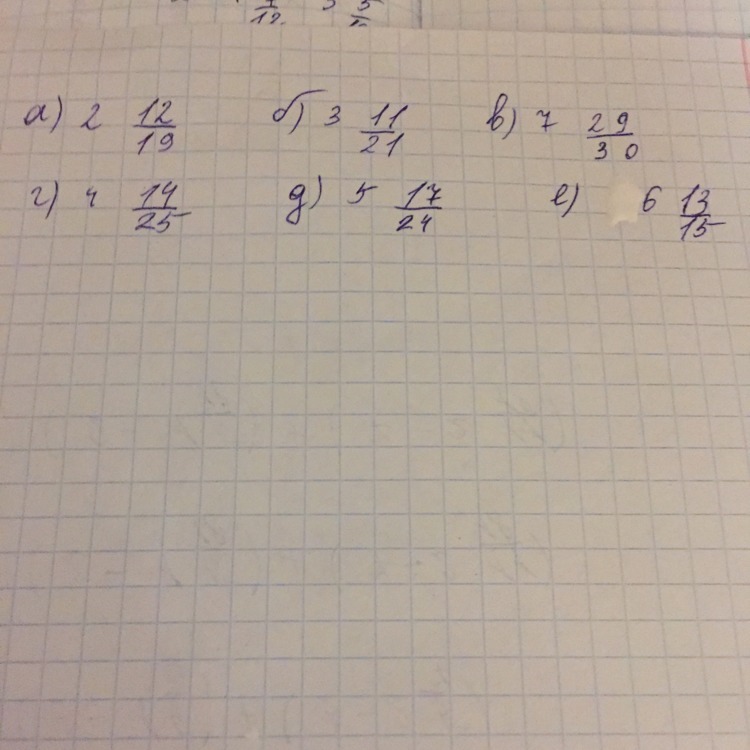 7/12 3 5
а) 2 12/19 б) 3 11/21 в) 7 29/30
г) 4 14/25 д) 5 17/24 е) 6 13/15